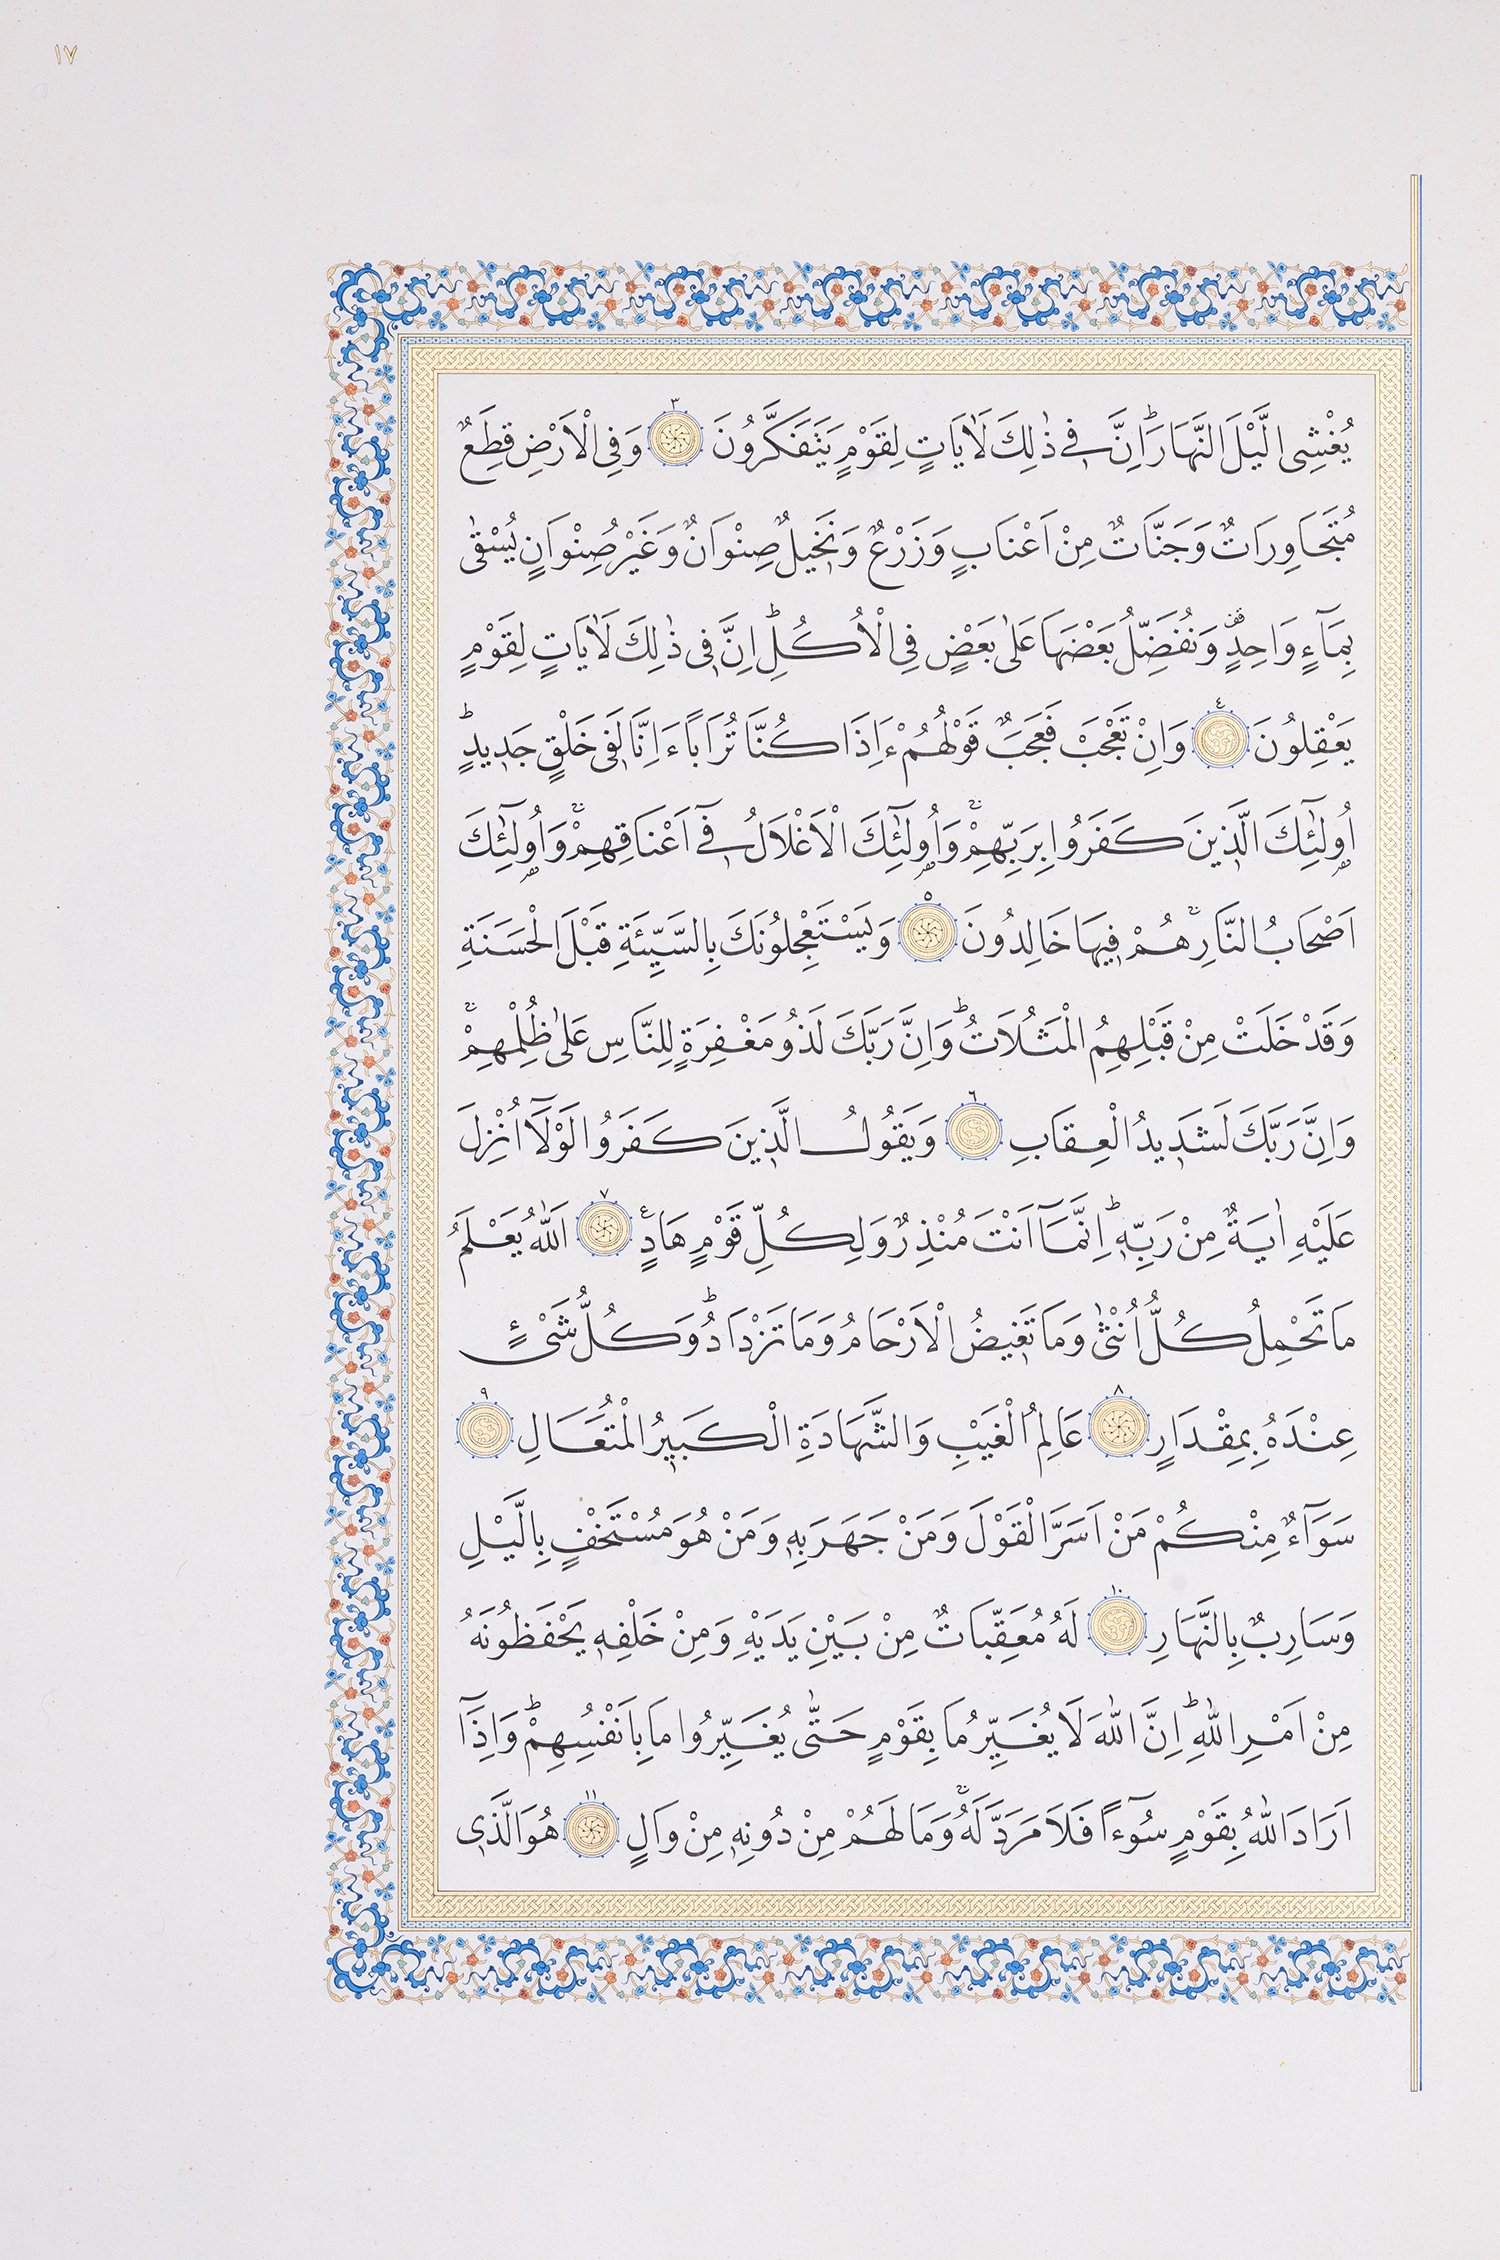 ١٧
يُغْشِى الَّيْلَ النَّهَارَۜ اِنَّ ف۪ي ذٰلِكَ لَاٰيَاتٍ لِقَوْمٍ يَتَفَكَّرُونَ ٣ وَفِى الْاَرْضِ قِطَعٌ
مُتَجَاوِرَاتٌ وَجَنَّاتٌ مِنْ اَعْنَابٍ وَزَرْعٌ وَنَخ۪يلٌ صِنْوَانٌ وَغَيْرُ صِنْوَانٍ يُسْقٰى
بِمَٓاءٍ وَاحِدٍ۠ وَنُفَضِّلُ بَعْضَهَا عَلٰى بَعْضٍ فِى الْاُكُلِۜ اِنَّ ف۪ى ذٰلِكَ لَاٰيَاتٍ لِقَوْمٍ
يَعْقِلُونَ ٤ وَاِنْ تَعْجَبْ فَعَجَبٌ قَوْلُهُمْ ءَاِذَا كُنَّا تُرَابًا ءَاِنَّا لَف۪ى خَلْقٍ جَد۪يدٍۜ
اُو۬لٰٓئِكَ الَّذ۪ينَ كَفَرُوا بِرَبِّهِمْۚ وَاُو۬لٰٓئِكَ الْاَغْلَالُ ف۪ٓي اَعْنَاقِهِمْۚ وَاُو۬لٰٓئِكَ
اَصْحَابُ النَّارِۚ هُمْ ف۪يهَا خَالِدُونَ ٥ وَيَسْتَعْجِلُونَكَ بِالسَّيِّئَةِ قَبْلَ الْحَسَنَةِ
وَقَدْ خَلَتْ مِنْ قَبْلِهِمُ الْمَثُلَاتُۜ وَاِنَّ رَبَّكَ لَذُو مَغْفِرَةٍ لِلنَّاسِ عَلٰى ظُلْمِهِمْۚ
وَاِنَّ رَبَّكَ لَشَد۪يدُ الْعِقَابِ ٦ وَيَقُولُ الَّذ۪ينَ كَفَرُوا لَوْلَٓا اُنْزِلَ
عَلَيْهِ اٰيَةٌ مِنْ رَبِّه۪ۜ اِنَّمَٓا اَنْتَ مُنْذِرٌ وَلِكُلِّ قَوْمٍ هَادٍ۟ ٧ اَللّٰهُ يَعْلَمُ
مَا تَحْمِلُ كُلُّ اُنْثٰى وَمَا تَغ۪يضُ الْاَرْحَامُ وَمَا تَزْدَادُۜ وَكُلُّ شَىْءٍ
عِنْدَهُ بِمِقْدَارٍ ٨ عَالِمُ الْغَيْبِ وَالشَّهَادَةِ الْكَب۪يرُ الْمُتَعَالِ ٩
سَوَٓاءٌ مِنْكُمْ مَنْ اَسَرَّ الْقَوْلَ وَمَنْ جَهَرَ بِه۪ وَمَنْ هُوَ مُسْتَخْفٍ بِالَّيْلِ
وَسَارِبٌ بِالنَّهَارِ ١٠ لَهُ مُعَقِّبَاتٌ مِنْ بَيْنِ يَدَيْهِ وَمِنْ خَلْفِه۪ يَحْفَظُونَهُ
مِنْ اَمْرِ اللّٰهِۜ اِنَّ اللّٰهَ لَا يُغَيِّرُ مَا بِقَوْمٍ حَتّٰى يُغَيِّرُوا مَا بِاَنْفُسِهِمْۜ وَاِذَٓا
اَرَادَ اللّٰهُ بِقَوْمٍ سُٓوءًا فَلَا مَرَدَّ لَهُۚ وَمَا لَهُمْ مِنْ دُونِه۪ مِنْ وَالٍ ١١ هُوَ الَّذ۪ى